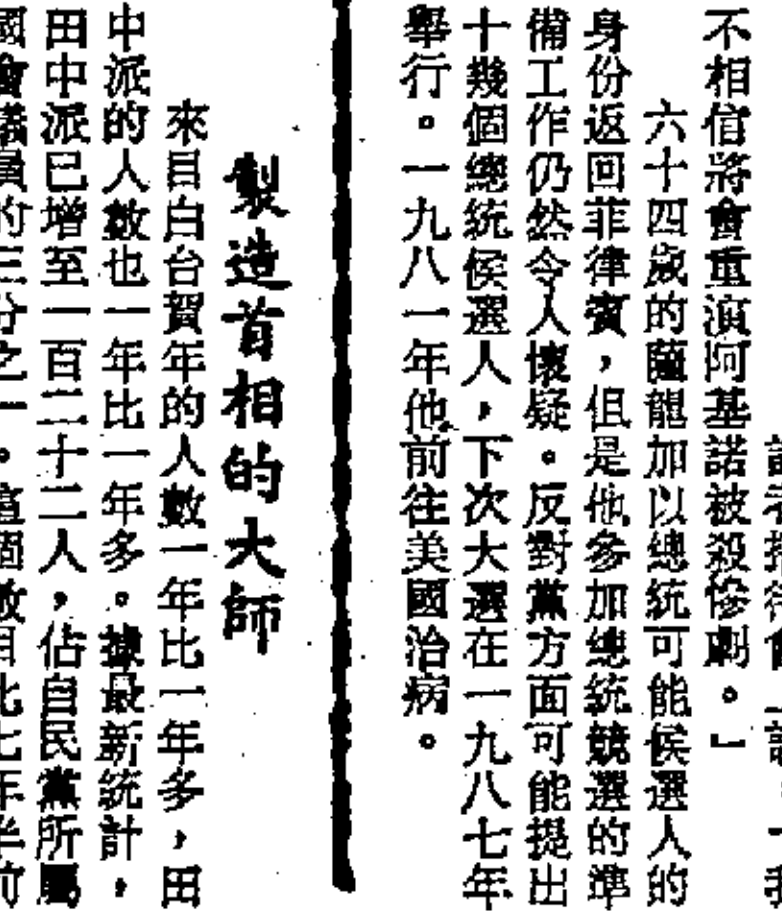 不相信將會重演阿基諾被殺慘劇。」
六十四歲的薩龍加以總統可能候選人的
身份返回菲律賓，但是他參加總統競選的準
備工作仍然令人懷疑。反對黨方面可能提出
十幾個總統侯選人，下次大選在一九八七年
舉行。一九八一年他前往美國治病。
製造首相的大師
來目白台賀年的人數一年比一年多，田
中派的人數也一年比一年多。據最新統計，
田中派已增至一百二十二人，佔自民黨所屬
國會議員的三份之一。這個數目比七年半前